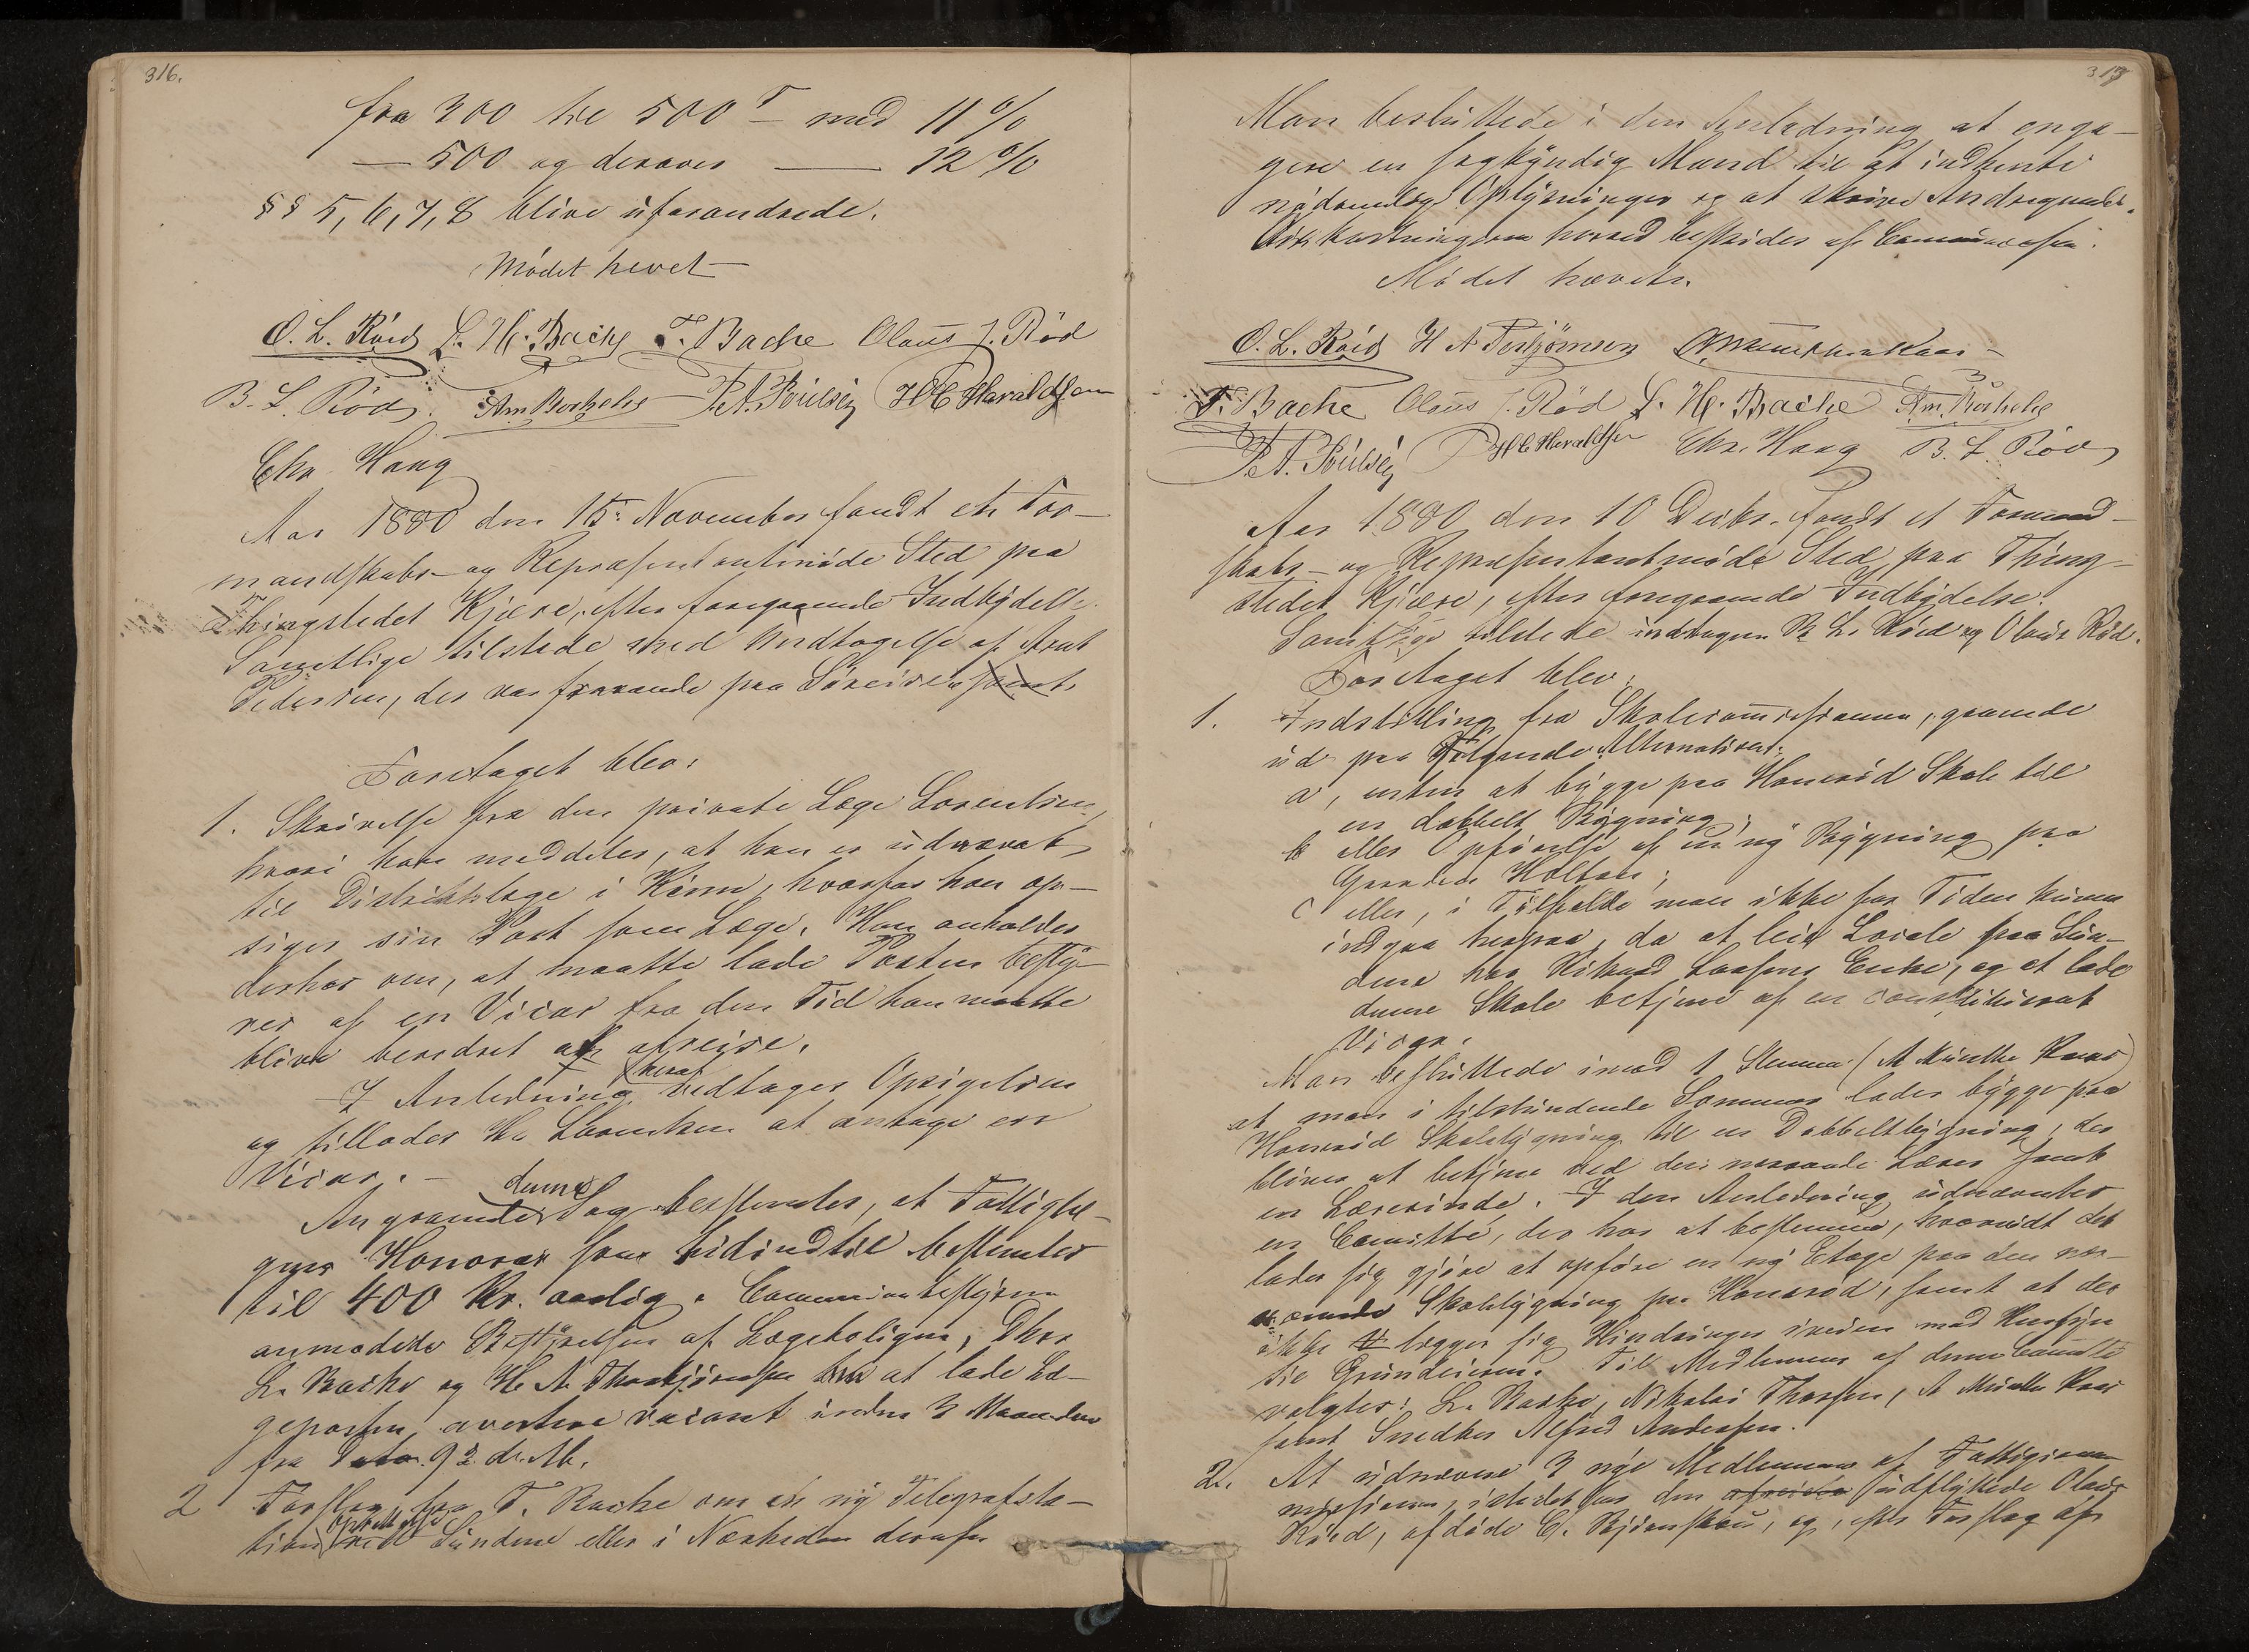 316.
fra 300 til 500 T - med 11 %
— 500 og derover — 12 %
§§ 5, 6, 7, 8 blive uforandrede.
Mødet hevet
O. L. Röed L. H. Bache T. Bache Olaus J. Röd
B. L. Röd. P. A. Poulsen H C Haraldsen
Chr. Haug
Aar 1880 den 15. November fandt et For-
mandskabs- og Repræsentantmöde Sted paa
Thingstedet Kjære, efter foregaaende Indbydelse.
Samtlige tilstede med Undtagelse af Arnt
Pedersen, der var fraværende paa Söreise samt
Foretaget blev:
1. Skrivelse fra den private Læge Lorentsen,
hvori han meddeler, at han er udnævnt
til Distriktslæge i Kinn, hvorfor han op-
siger sin Post som Læge. Han anholder
derhos om, at maatte lade Posten besty-
res af en Vicar fra den Tid han maatte
blive beredret at afreise.
I Anledning heraf vedtages Opsigelsen
og tillades Hr Lorentsen at antage en
Vicar. -
Angaaende denne Sag bestemtes, at Fattiglæ-
gens Honorar som hidindtil bestemtes
til 400 Kr. aarlig. Communebestyren
anmodede Bestyrelsen af Lægeboligen, Dhrr
L. Bache og H. A. Thorbjörnsen om at lade Læ-
geposten avertere vacant inden 3 Maaneder
fra Dato 9 d. M.
2 Forslag fra T. Bache om en ny Telegrafsta-
tion oprettet ved Sundene eller i Nærheden deraf.
317
Man besluttede i den Anledning at enga-
gere en sagkyndig Mand til at indhente
nødvendige Oplysninger og at skrive Andragendet.
Omkostningerne herved bestrides af Communecassen.
Mødet hævet.
O. L. Röed H A Torbjörnsen A Munthe Kaas
T. Bache Olaus J. Röd L. H. Bache
P. A. Poulsen H C Haraldsen Chr. Haug B. L. Röd
Aar 1880 den 10 Decbr. fandt et Formand-
skabs- og Repræsentantmöde Sted paa Thing-
stedet Kjære, efter foregaaende Indbydelse.
Samtlige tilstede undtagen B. L. Röed og Olaus Röd.
Foretaget blev:
1. Indstilling fra Skolecommissionen, gaaende
ud paa følgende Alternativer:
a, enten at bygge paa Honerød Skole til
en dobbelt Bygning;
b eller Opførelse af en ny Bygning paa
Gaarden Holtan;
c eller, i Tilfælde man ikke for Tiden kunne
indgaa herpaa, da at leie Locale paa Sun-
dene hos Rikard Larsens Enke, og at lade
denne Skole betjene af en constitueret
Vicar.
Man besluttede imod 1 Stemme (A Munthe Kaas)
at man i tilstundende Sommer lader bygge paa
Honerød Skolebygning til en Dobbeltbygning, der
bliver at betjene ved den nærværende Lærer samt
en Lærerinde. I den Anledning udnævntes
en Comitté, der har at bestemme, hvorvidt det
lader sig gjöre at opföre en ny Etage paa den nær-
værende Skolebygning paa Honerød, samt at der
ikke lægger sig Hindringer iveien med Hensyn
til Grundeieren. Til Medlemmer af denne Comitté
valgtes: L. Bache, Nikolai Thorsen, A Munthe Kaas
samt Snedker Alfred Andersen.
2. At udnævne 3 nye Medlemmer af Fattigcom-
missionen, istedet for den afreiste udflyttede Olaus
Röed, afdøde C. Bjørnskau, og, efter Forslag af